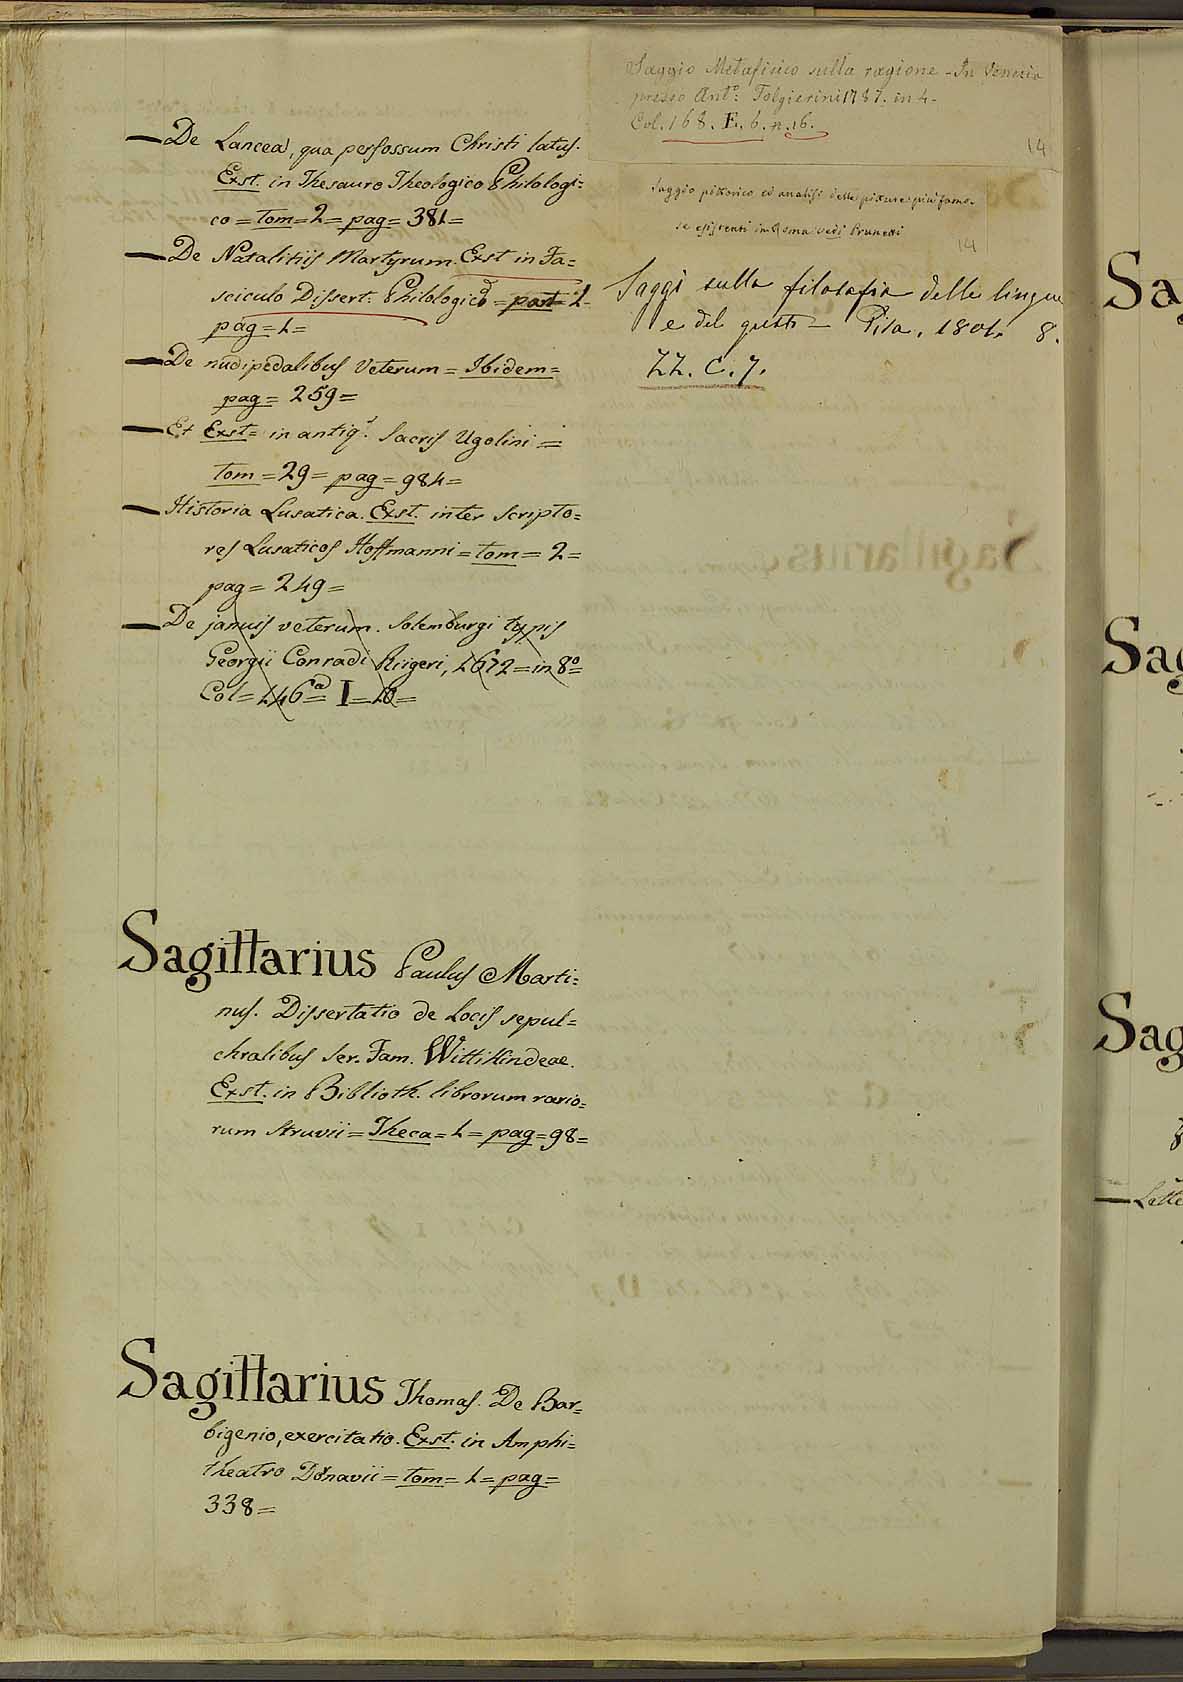 — De Lancea, qua perfossum Christi latus.
Exst. in Thesauro Theologico Philologi=
co = tom = 2 = pag = 381 =
— De Natalitiis Martyrum. Exst in Fa=
sciculo Dissert. Philologico = part = 1 =
pag = 1 =
— De nudipedalibus Veterum = Ibidem =
pag = 259 =
— Et Exst = in antiq. Sacris Ugolini =
tom = 29 = pag = 984 =
— Historia Lusatica. Exst. inter Scripto=
res Lusaticos Hoffmanni = tom = 2 =
pag = 249 =
— De januis veterum. typis
Georgii Conradi 1672 = in 8º =
Col = 146 = I = 10 =
Sagittarius Paulus Marti=
nus. Dissertatio de Locis sepul=
chralibus Ser. Fam. Wittikindeae.
Exst. in Biblioth. librorum rario=
rum Struvii = Theca = 1 = pag = 98 =
Sagittarius Thomas. De Bar=
bigenio, exercitatio. Exst. in Amphi=
theatro Dornavii = tom = 1 = pag =
338 =
Saggio Metafisico sulla ragione - In Venezia
presso Antº: 1787. in 4.
Col. 168. E. 6. n. 16.
14
Saggio pittorico ed analisi delle pitture più famo-
se esistenti in Roma vedi Prunetti
14
Saggi sulla filosofia delle lingue
e del gusto - Pisa, 1801. 8.
ZZ. C. 7.
Sa
Sag
Sag
— Lette